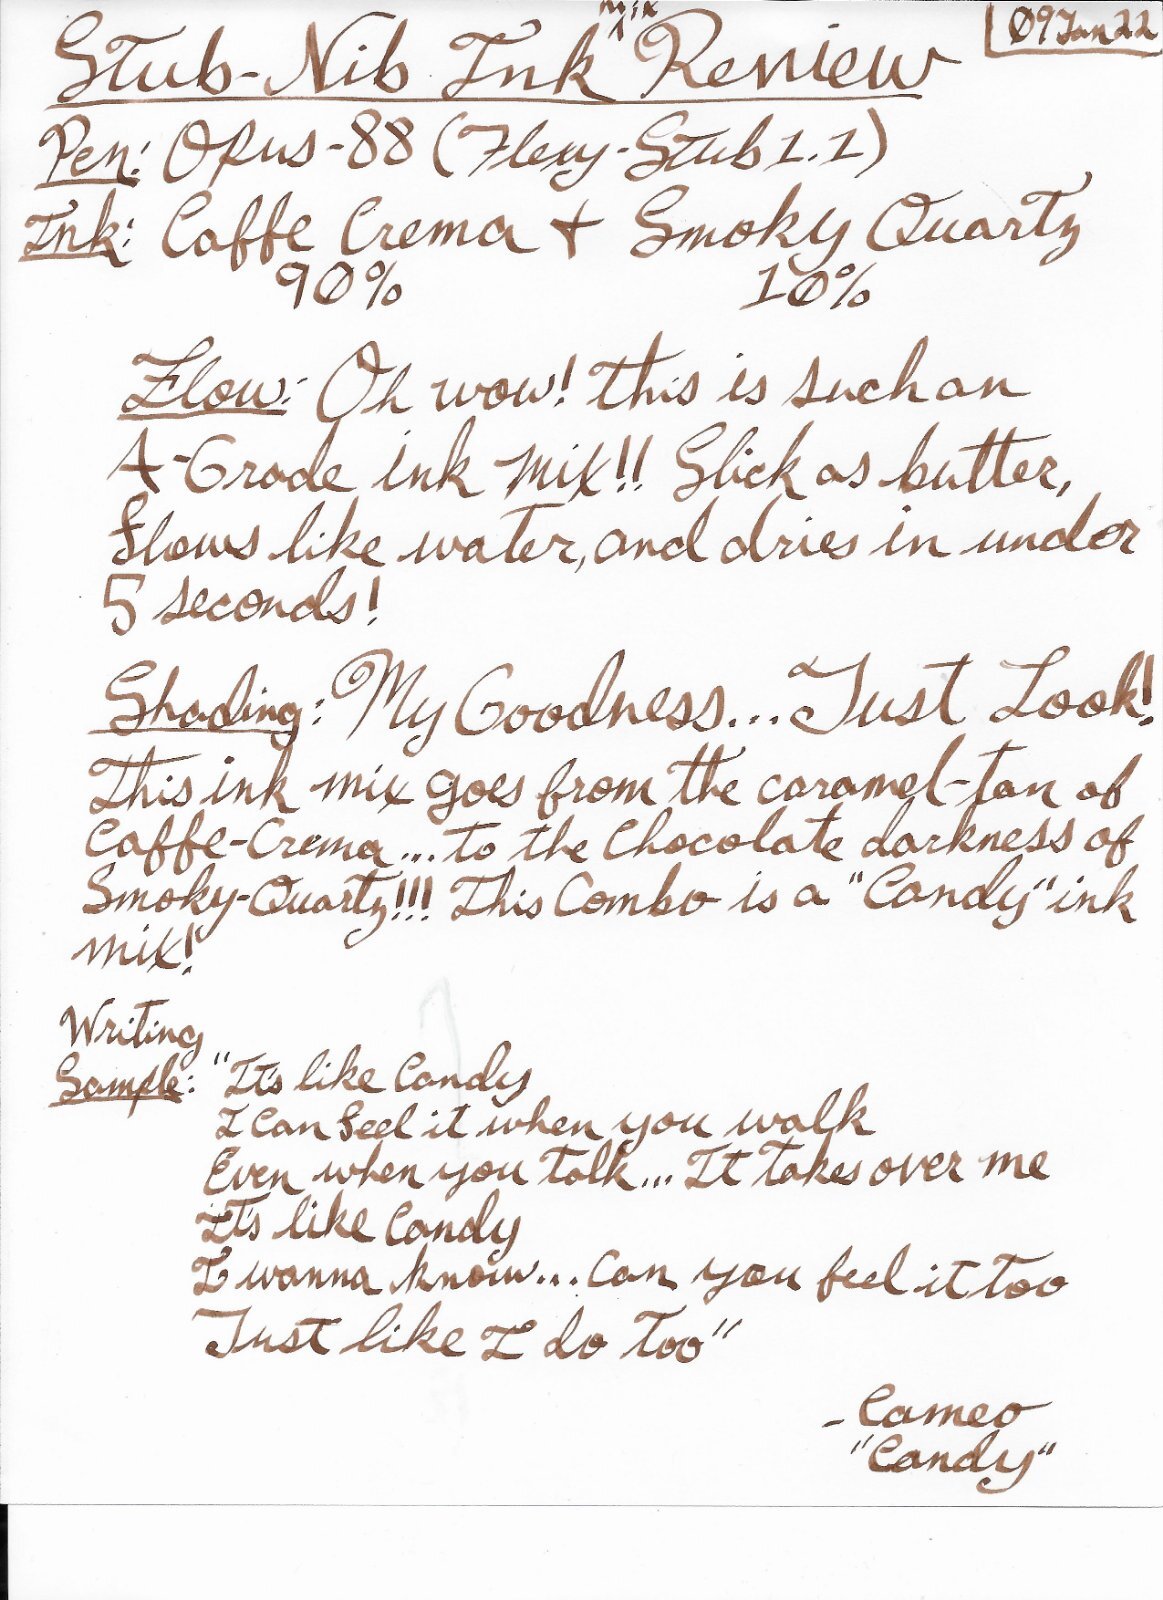 09Jan22
Stub-Nib Ink mix Review
Pen: Opus-88 (Flexy-Stub 1.1)
Ink: Caffe Crema + Smoky Quartz
90% 10%
Flow: Oh wow! this is such an
A-Grade ink mix!! Slick as butter,
flows like water, and dries in under
5 seconds!
Shading: My Goodness... Just Look!
This ink mix goes from the caramel-tan of
Caffe-Crema... to the Chocolate darkness of
Smoky-Quartz!!! This Combo is a "Candy" ink
mix!
Writing
Sample: "It's like Candy
I Can feel it when you walk
Even when you talk... It takes over me
It's like Candy
I wanna know... Can you feel it too
Just like I do too"
- Cameo
"Candy"